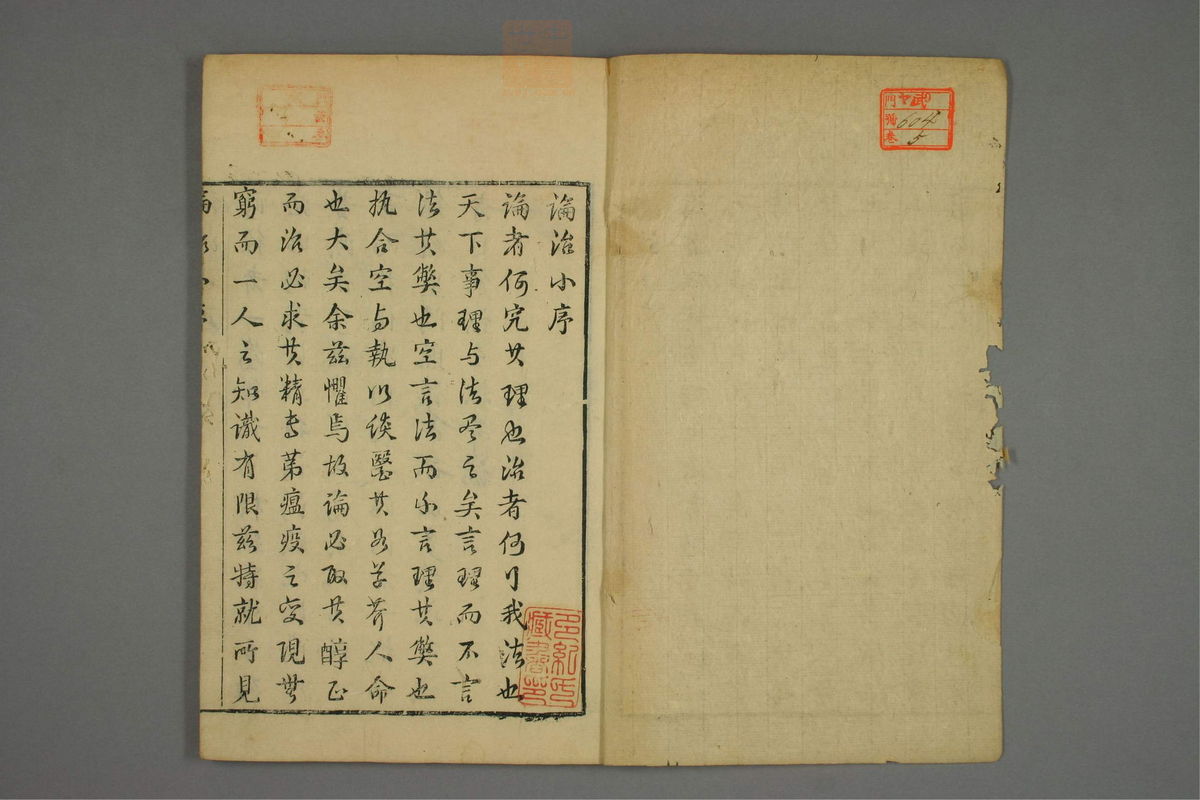 論治小序
論者何究其理也治者何行我法也
天下事理与法尽之矣言理而不言
法其弊也空言法而不言理其弊也
执合空与執以談醫其如草芥人命
也大矣余兹懼焉故論必取其醇正
而治必求其精専第瘟疫之变現無
窮而一人之知識有限兹特就所見
門
號 604
卷 5